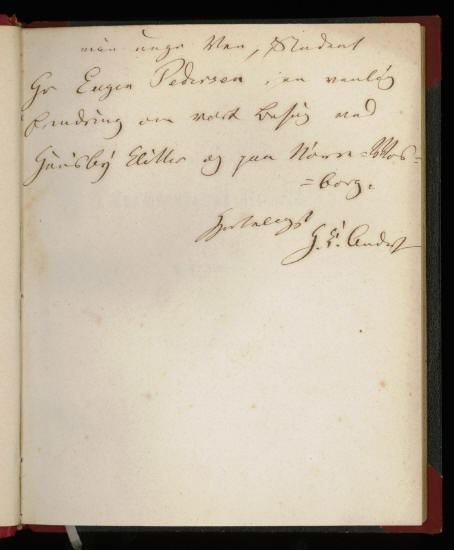 min unge Ven, Student
Hr Eugen Pedersen i en venlig
Erindring om vort Besøg ved
Huusby Klitter og paa Nørre-Vos=
=borg.
Hjerteligst
H. C. Anders